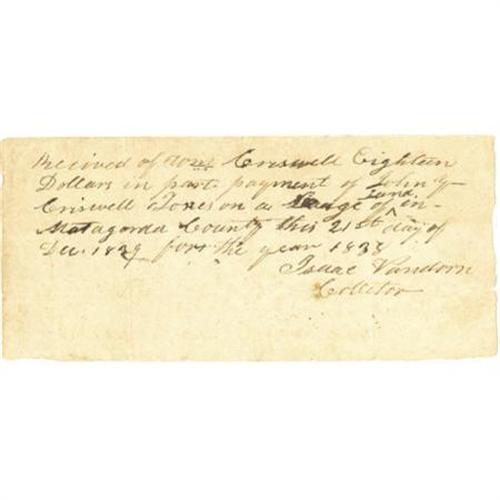 Recived of Criswell Eighteen
Dollars in part payment of John Y
Criswell Taxes on a League of land in
Matagorda County this 21st day of
Dec. 1839 for the year 1838
Isaac Vandorn
Collctor